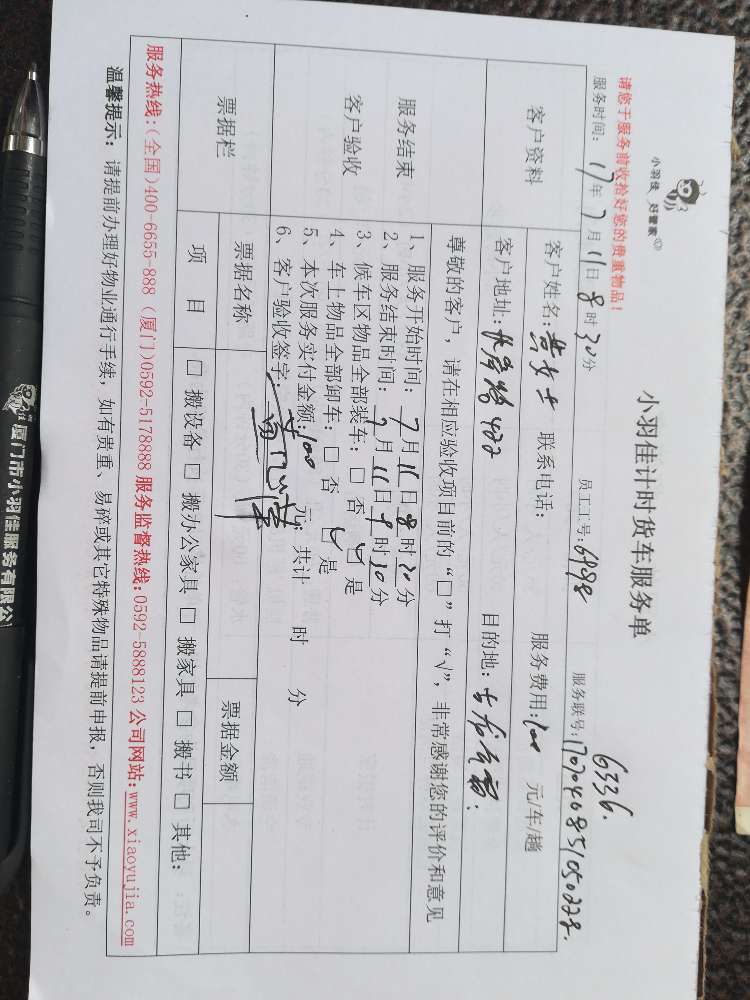 小羽佳 好管家
小羽佳计时货车服务单
请您于服务前收拾好您的贵重物品！
6336.
服务时间: 17年7月11日8时30分 员工工号: 6998 服务联号:
客户资料
客户姓名: 黄女士 联系电话: 服务费用: 100 元/车/趟
客户地址: 422 目的地:
服务结束
客户验收
尊敬的客户，请在相应验收项目前的“□”打“√”，非常感谢您的评价和意见
1、服务开始时间: 7月11日8时30分
2、服务结束时间: 7月11日9时30分
3、候车区物品全部装车: □ 否 ☑ 是
4、车上物品全部卸车: □ 否 ☑ 是
5、本次服务实付金额: 100 元; 共计 时 分
6、客户验收签字:
票据栏
票据名称 票据金额
项 目 □ 搬设备 □ 搬办公家具 □ 搬家具 □ 搬书 □ 其他:
服务热线:(全国)400-6655-888 (厦门)0592-5178888 服务监督热线:0592-5888123 公司网站:www.xiaoyujia.com
温馨提示: 请提前办理好物业通行手续，如有贵重、易碎或其它特殊物品请提前申报，否则我司不予负责。
厦门市小羽佳服务有限公